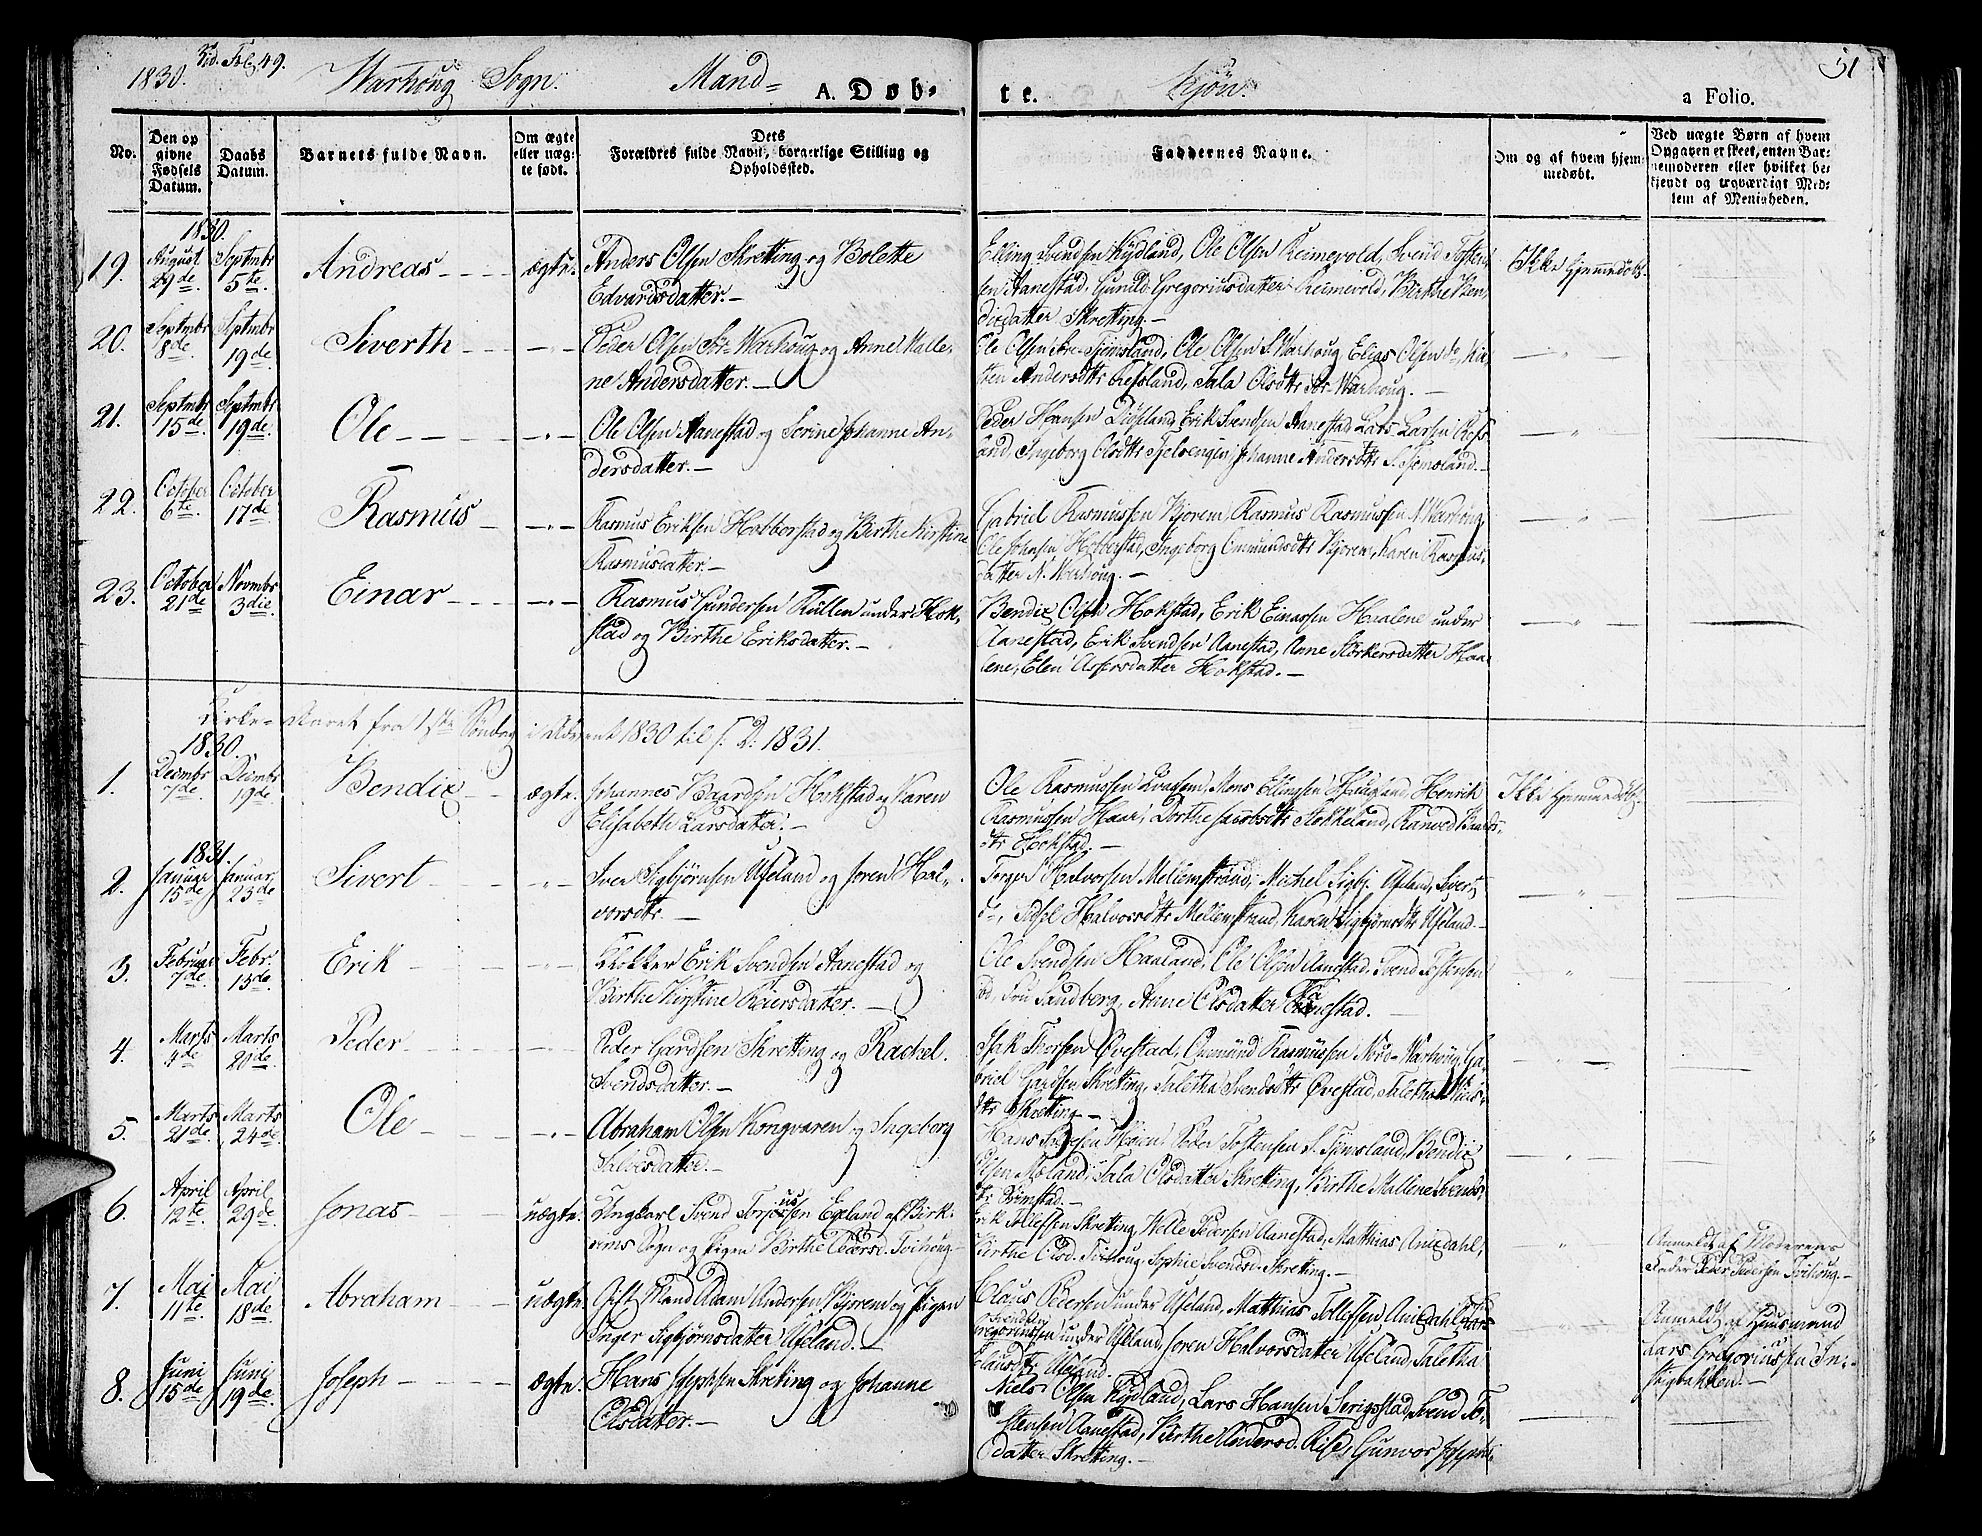 1830. Vid. Fol. 49. Warhoug Sogn. Mand= A. Døb= te. Kjøn. a Folio. 51
No. Den op givne Fødsels Datum. Daabs Datum. Barnets fulde Navn. Om ægte eller uæg= te født. Dets Forældres fulde Navn, borgerlige Stilling og Opholdssted. Faddernes Navne. Om og af hvem hjem= medøbt. Ved uægte Børn af hvem Opgaven er skeet, enten Bar= nemoderen eller hvilket be= kjendt og troværdigt Med= lem af Menigheden.
1830.
19. August 29de Septmbr 5te Andreas ægte. Anders Olsen Skretting og Bolette
Edvardsdatter.
Elling Svendsen Kydland, Ole Olsen Reimevold, Svend Tosten=
sen Aanestad, Gunild Gregoriusdatter Reimevold, Birthe Ben=
dixdatter Skretting.
Ikke hjemmedøbt.
20. Septmbr 8de Septmbr 19de Siverth Peder Olsen Str. Warhoug og Anne Malle=
ne Andersdatter.
Ole Olsen Str. Tjemsland, Ole Olsen S. Warhoug Elias Olsen do,
Andersdtr. Tala Olsdtr Str. Warhoug.
21. Septmbr 15de Septmbr 19de Ole Ole Olsen Aanestad og Serine Johanne An=
dersdatter.
Peder Hansen Erik Svendsen Aanestad Lars Larsen Ros
land, Ingeborg Olsdtr Johanne Andersdtr S. Tjemsland.
22. October 6te October 17de Rasmus Rasmus Eriksen Hobberstad og Birthe Kirstine
Rasmusdatter.
Gabriel Rasmussen Bjorem, Rasmus Rasmussen N. Warhoug,
Ole Johnsen Hobberstad, Ingeborg Ommundsdtr Bjorem, Karen Rasmus=
datter N. Warhoug.
23. October 21de Novmbr 3die Einar Rasmus Gundersen Kullen under Hok=
stad og Birthe Eriksdatter.
Bendix Olsen Hokstad, Erik Einarsen Haalene under
Aanestad, Erik Svendsen Aanestad, Anne Størkersdatter Haa
lene, Elen Assersdatter Hokstad.
Kirke=Aaret fra 1ste Søndag i Advent 1830 til s. D. 1831.
1830.
1. Decmbr 7de Decmbr 19de Bendix ægte. Johannes Baardsen Hokstad og Karen
Elisabeth Larsdatter.
Ole Rasmussen Mons Ellingsen Haugland, Henrik
Rasmussen Haar, Dorthe Jacobsdtr Stokkeland, Ranved Baards=
dtr Hokstad.
Ikke hjemmedøbt.
1831.
2. Januar 15de Januar 23de Sivert Iver Sigbjørnsen Useland og Soren Hal=
vorsdtr.
Torger Halvorsen Mellemstrand, Michel Sigbj. Useland, Sivert
do, Sidsel Halvorsdtr Mellemstrand, Karen Sigbjørnsdtr Useland.
3. Februar 7de Febr. 13de Erik Klokker Erik Svendsen Aanestad og
Birthe Kirstine Reiersdatter.
Ole Svendsen Haaland, Ole Olsen Aanestad, Svend Tostensen
do, Fru Sandberg, Anne Olsdatter Aanestad.
4. Marts 4de Marts 20de Peder Peder Gardsen Skretting og Rachel
Svendsdatter.
Isak Thorsen Øvestad, Ommund Rasmussen Nord=Warhoug, Ga=
briel Gardsen Skretting, Taletha Svendsdtr Øvestad, Taletha Niels=
dtr Skretting.
5. Marts 21de Marts 24de Ole Abraham Olsen Kongvaren og Ingeborg
Salvesdatter.
Hans Høien, Peder Tostensen S. Tjemsland, Bendix
Olsen Møland, Tala Olsdatter Skretting, Birthe Mallene Svends=
dtr
6. April 12te April 29de Jonas uægte. Ungkarl Svend Torsensen Egeland af Birk=
rems Sogn og Pigen Birthe Pedersd. Tvihoug.
Erik Tollefsen Skretting, Welle Pedersen Aanestad, Matthias Anisdahl,
Birthe Olsd. Tvihoug, Sophie Svendsd. Skretting.
Anmeldt af Moderens
Fader Peder Pedersen Tvihoug.
7. Mai 11te Mai 18de Abraham uægte. Gift Mand Adam Andersen Bjorem og Pigen
Inger Sigbjørnsdatter Useland.
Claus Reiersen under Useland, Matthias Tollefsen Anisdahl, Lars
Gregoriussen under Useland, Soren Halvorsdatter Useland, Taletha
Clausdtr Useland.
Anmeldt af Huusmand
Lars Gregoriussen
8. Juni 15de Juni 19de Joseph ægte. Hans Josephsen Skretting og Johanne
Olsdatter.
Niels Olsen Kydland, Lars Hansen Serigstad, Svend To=
stensen Aanestad, Birthe Andersd. Rise, Gunvor Joseps=
datter Skretting.